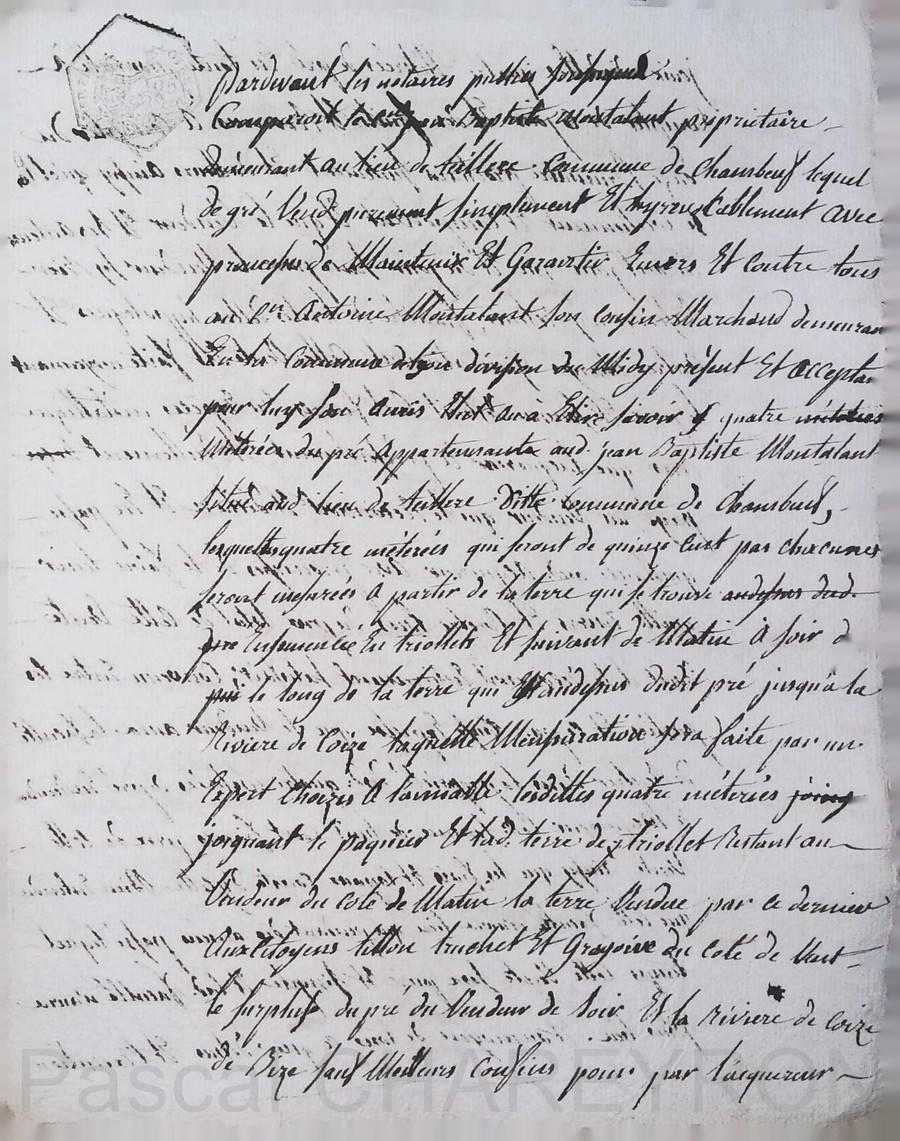 Pardevant les notaires publics soussignés
Comparoit le cen jean Baptiste Montalant propriétaire
demeurant au lieu de tuillere commune de Chambeuf lequel
de gré Vend purement simplement Et hyrevocablement avec
promesse de Maintenir Et Garantir Envers Et contre tous
au Cen Antoine Montalant son cousin Marchand demeuran
En la Commune de lyon division du Midy présent Et accepta
pour luy son amis Elut ou à Elire savoir quatre métérées
Métérées du pré appartenante aud. jean Baptiste Montalant
situé aud lieu de tuillere ditte commune de Chambeuf,
lesquelles quatre méterées qui seront de quinze cent pas chacunes
seront mesurées a partir de la terre qui se trouve audessus dud.
pré Ensemencée En triollets Et suivant de Matin à soir
le long de la terre qui Est audessus dudit pré jusqu'à la
Riviere de Coize laquelle Mensuration sera faite par un
Expert Choizis a lamiable lesdittes quatre méterées joing
joignant le paquier Et lad. terre de triollet Restant au
Vendeur du coté de Matin la terre Vendue par ce dernier
Aux Citoyens tillon truchet Et Gregoire du coté de Vent
le surplus du pré du Vendeur de soir Et la riviere de Coize
de Bize sauf Meilleurs Confins pour par lacquereur
Pascal CHAREYRON